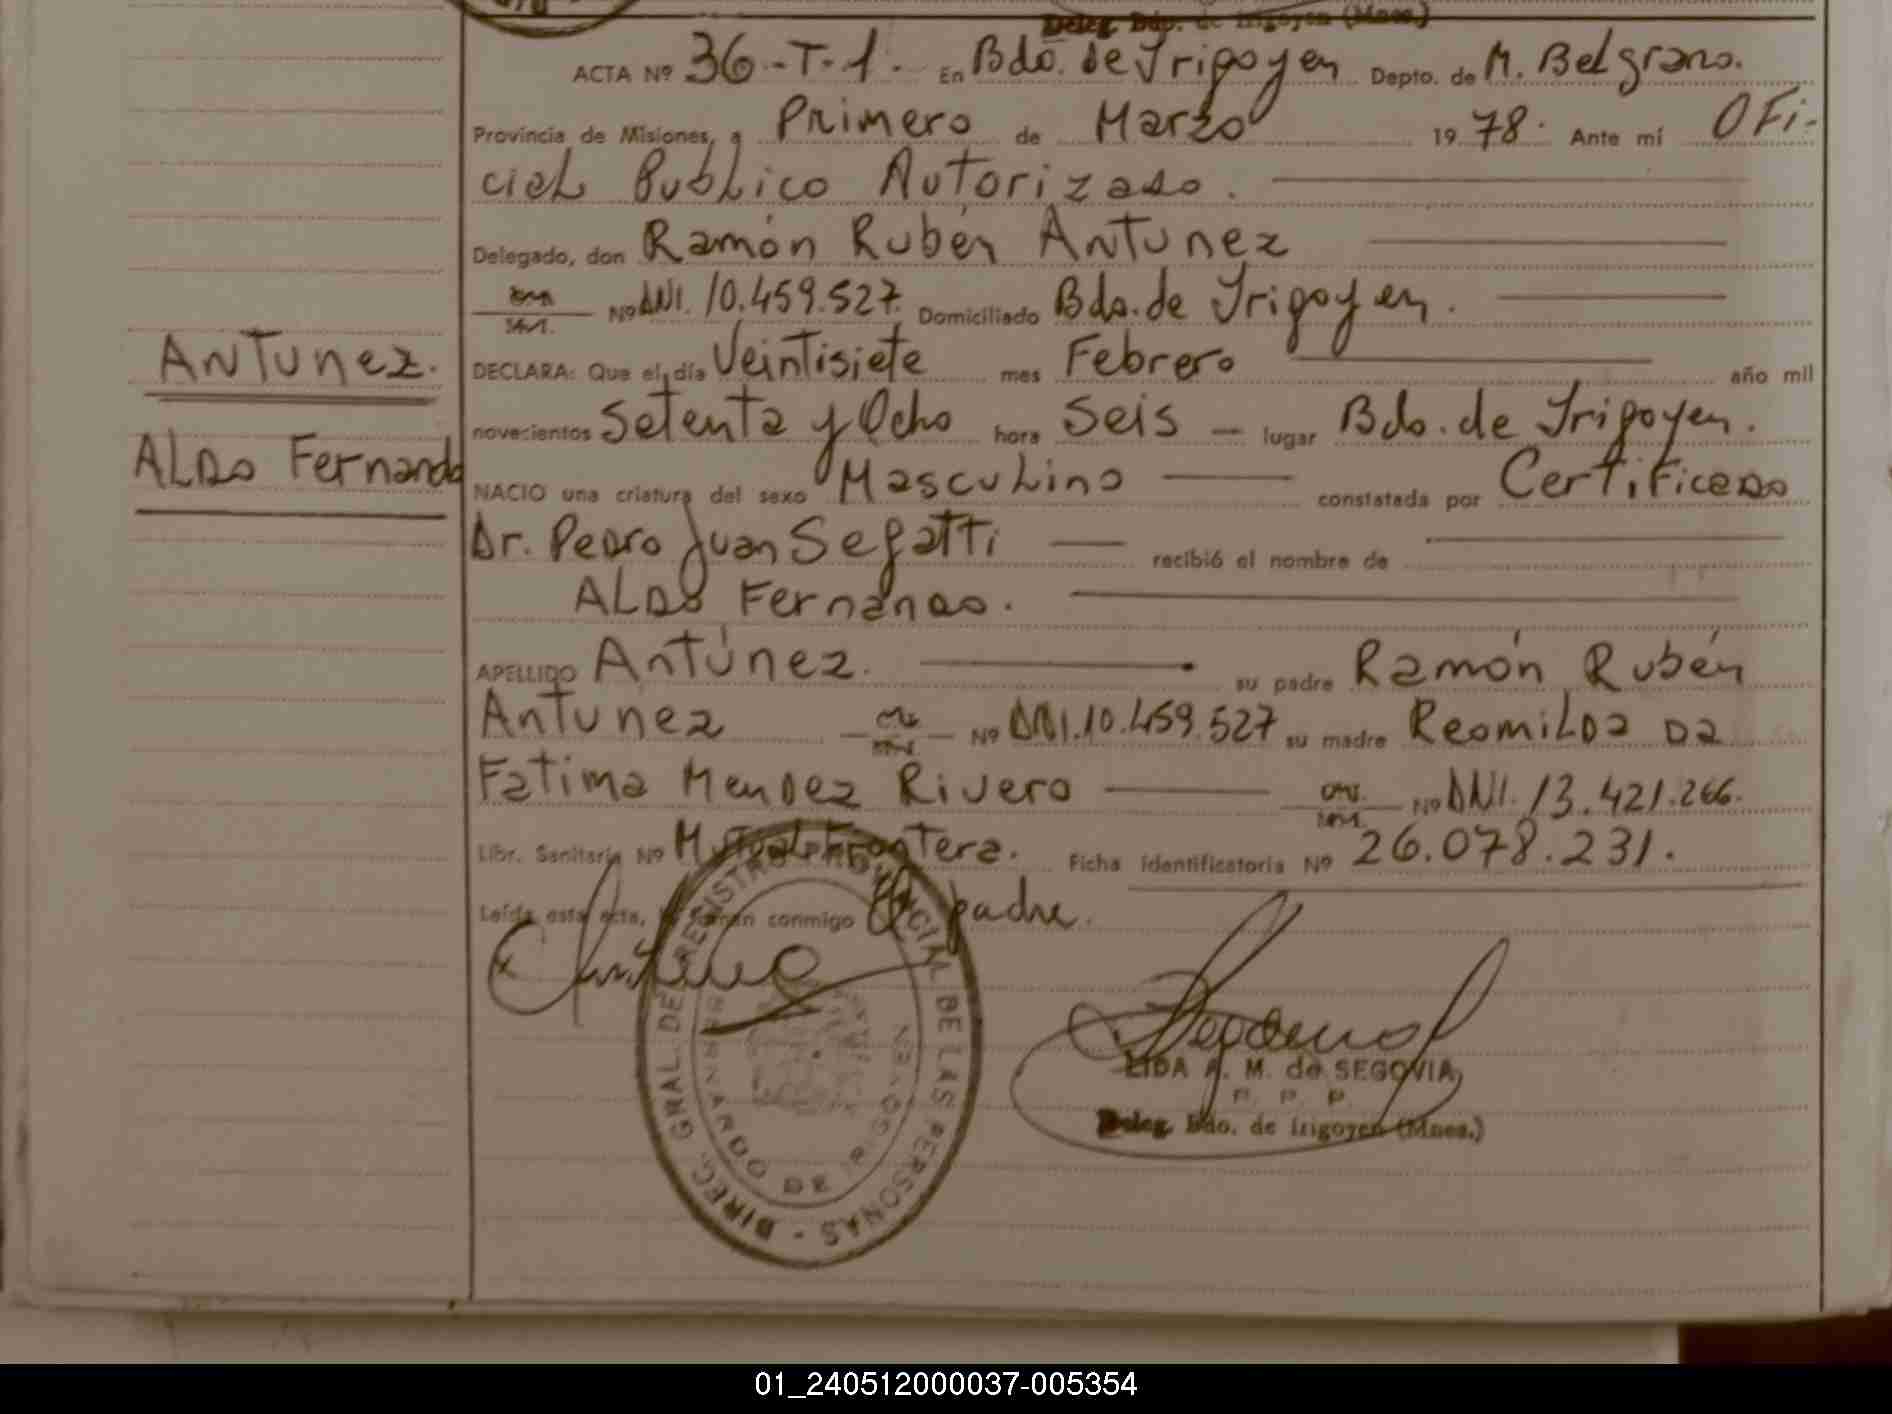 Deleg. Bdo. de Irigoyen (Mnes.)
ACTA Nº 36-T-1. En Bdo. de Yrigoyen Depto. de M. Belgrano.
Provincia de Misiones, a Primero de Marzo 1978. Ante mí OFi-
cial Publico Autorizado.
Delegado, don Ramón Rubén Antunez
Nº DNI. 10.459.527. Domiciliado Bdo. de Yrigoyen.
DECLARA: Que el día Veintisiete mes Febrero año mil
novecientos Setenta y Ocho hora Seis — lugar Bdo. de Yrigoyen.
NACIO una criatura del sexo Masculino constatada por Certificado
Dr. Pedro Juan Segatti recibió el nombre de
Aldo Fernando.
APELLIDO Antúnez. su padre Ramón Rubén
Antunez Nº DNI. 10.459.527 su madre Reomilda Da
Fatima Mendez Rivero Nº DNI. 13.421.266.
Libr. Sanitaria Nº Mutual Frontera. Ficha identificatoria Nº 26.078.231.
Leída esta acta, la firman conmigo El padre.
Antunez.
Aldo Fernando
DIREC. GRAL. DE REGISTRO PROVINCIAL DE LAS PERSONAS
BERNARDO DE IRIGOYEN
LIDA A. M. de SEGOVIA
Deleg. Bdo. de Irigoyen (Mnes.)
01_240512000037-005354